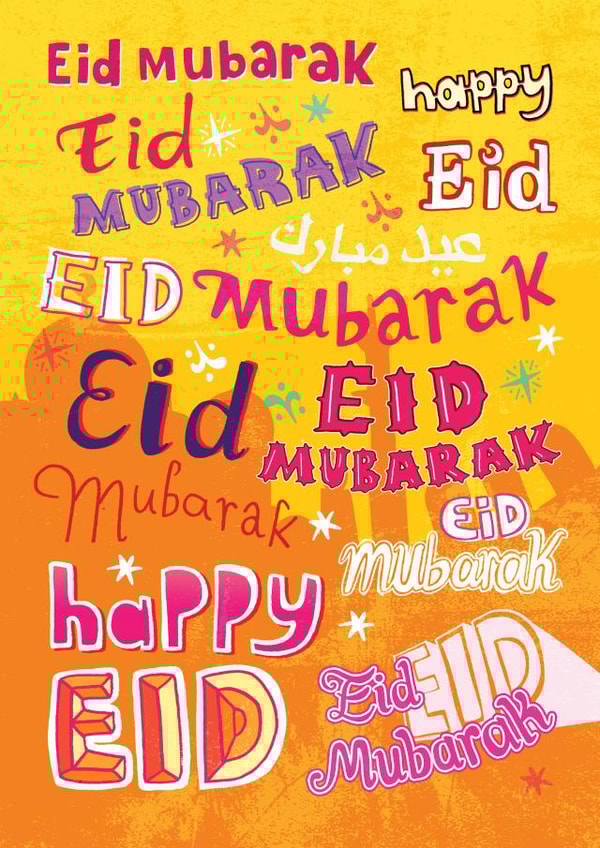 Eid Mubarak
happy
Eid
Eid
MUBARAK
عيد مبارك
EID Mubarak
Eid
Mubarak
EID
MUBARAK
EiD
Mubarak
happy
EID
EID
Eid
Mubarak